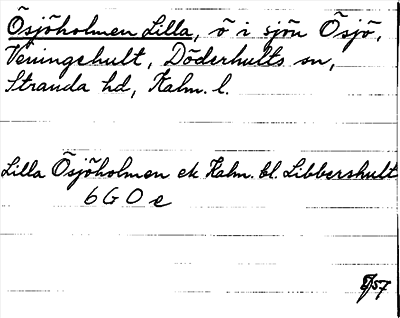 Ösjöholmen Lilla, ö i sjön Ösjö,
Veningehult, Döderhults sn,
Stranda hd, Kalm. l.
Lilla Ösjöholmen ek Kalm. bl. Libbershult
6 G 0 e